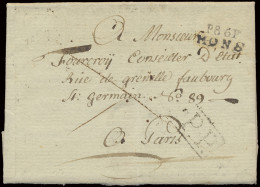 A Monsieur
P.86.P.
MONS
Fourcroÿ Conseiller D'Etat
Rue de grenelle faubourg
St. Germain No. 89
A Paris